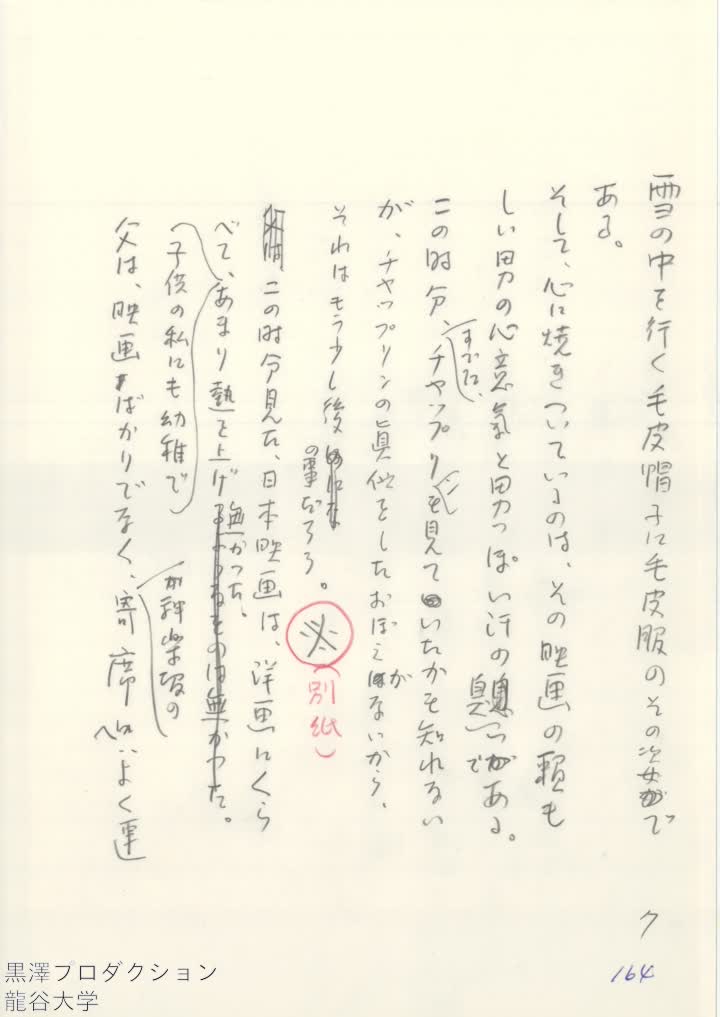 雪の中を行く毛皮帽子に毛皮服のその姿がで
ある。
そして、心に焼きついているのは、その映画の頼も
しい男の心意気と男っぽい汗の臭いである。
この時分、すでに、チャップリンを見ていたかも知れない
が、チャップリンの真似をしたおぼえがないから、
それはもう少し後の事だろう。
※
(別紙)
この時分見た、日本映画は、洋画にくら
べて、あまり熱を上げ無かった。
(子供の私にも幼稚で)
父は、映画ばかりでなく、神楽坂の寄席へも、よく連
ク
164
黒澤プロダクション
龍谷大学